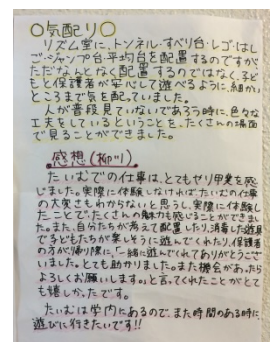 ○気配り○
リズム室に、トンネル・すべり台・レゴ・はし
ご・ジャンプ台・平均台を配置するのですが
ただなんとなく配置するのではなく、子ど
もと保護者が安心して遊べるように、細かい
ところまで気を配っていました。
人が普段見ていないであろう時に、色々な
工夫をしているということを、たくさんの場面
で見ることができました。
感想(柳川)
たいむでの仕事は、とてもやり甲斐を感
じました。実際に体験しなければたいむの仕事
の大変さもわからないと思うし、実際に体験し
たことで、たくさんの魅力も感じることができまし
た。また、自分たちが考えて配置したり、消毒した遊具
で子どもたちが楽しそうに遊んでくれたり、保護者
の方が帰り際に、「一緒に遊んでくれてありがとうござ
いました。とても助かりました。また機会があったら
よろしくお願いします。」と言ってくれたことがとて
も嬉しかったです。
たいむは学内にあるので、また時間のある時に、
遊びに行きたいです!!